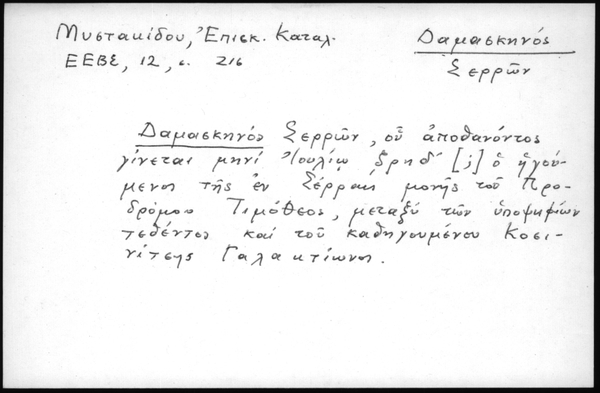 Μυστακίδου, Ἐπισκ. Καταλ.
ΕΕΒΣ, 12, σ. 216
Δαμασκηνός
Σερρῶν
Δαμασκηνός Σερρῶν, οὗ ἀποθανόντος
γίνεται μηνί Ἰουλίῳ ͵ζρηδ΄ [;] ὁ ἡγού-
μενος τῆς ἐν Σέρραις μονῆς τοῦ Προ-
δρόμου Τιμόθεος, μεταξύ τῶν ὑποψηφίων
τεθέντος καί τοῦ καθηγουμένου Κοσι-
νίτσης Γαλακτίωνος.